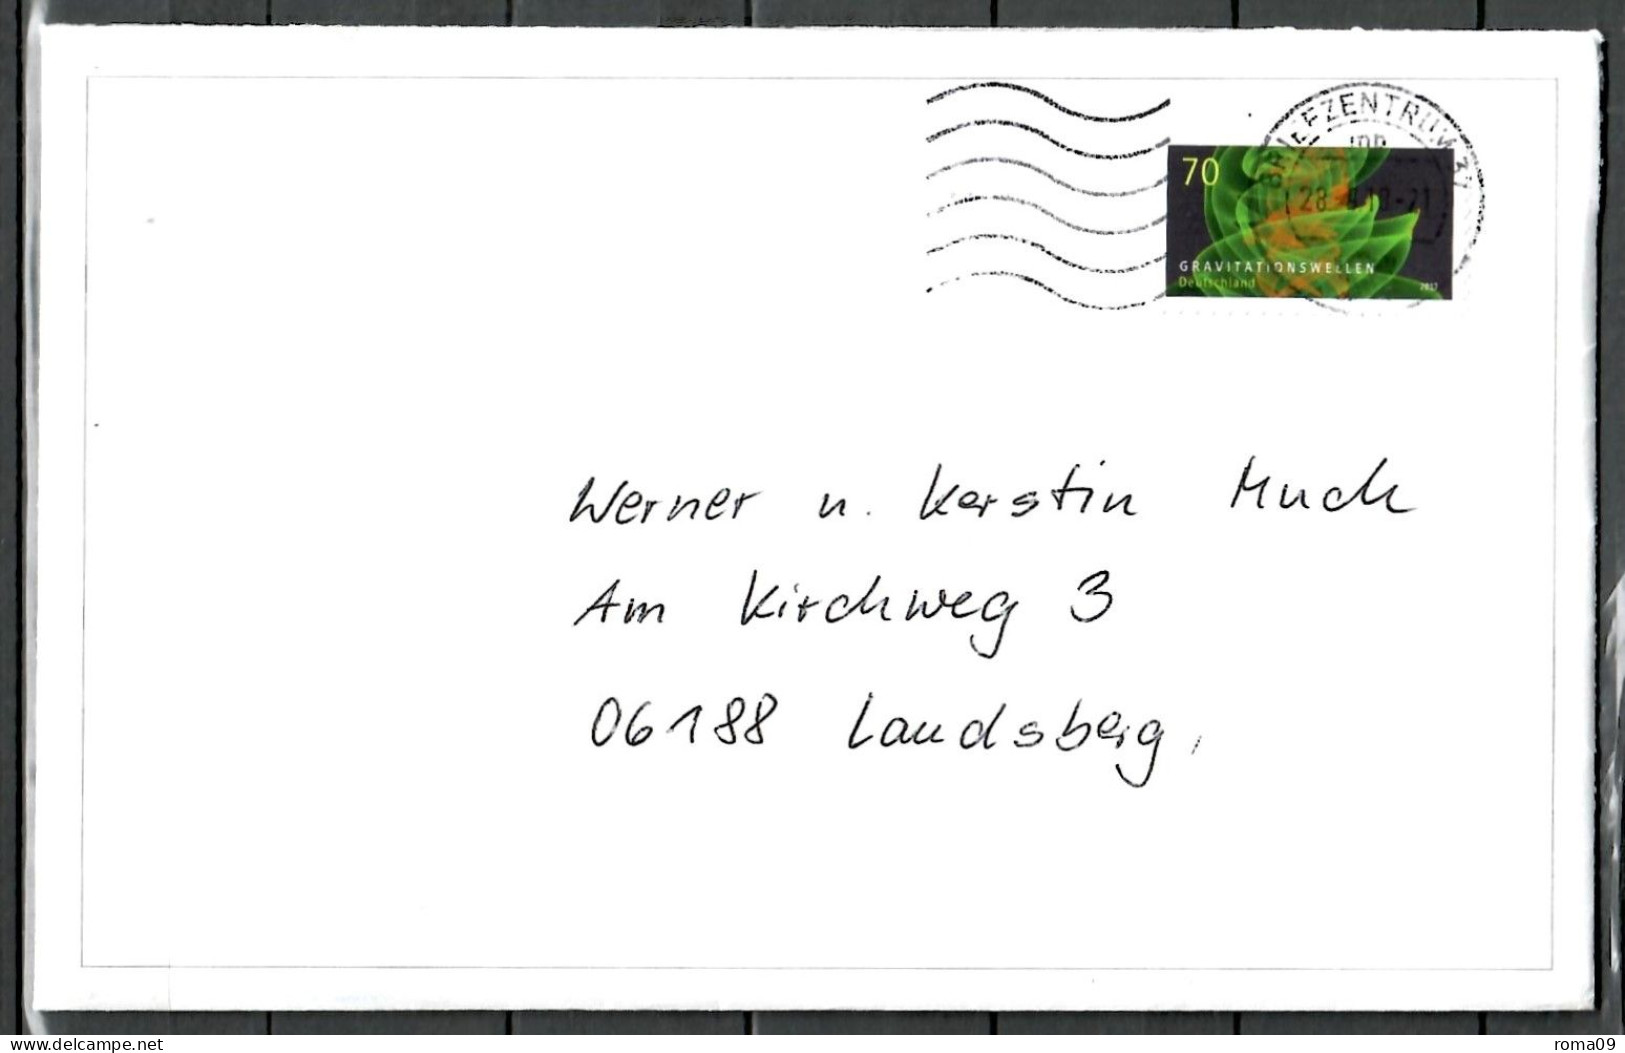 BRIEFZENTRUM 37
70
GRAVITATIONSWELLEN
Deutschland
2017
Werner u. Kerstin Muck
Am Kirchweg 3
06188 Landsberg,
www.delcampe.net
roma09